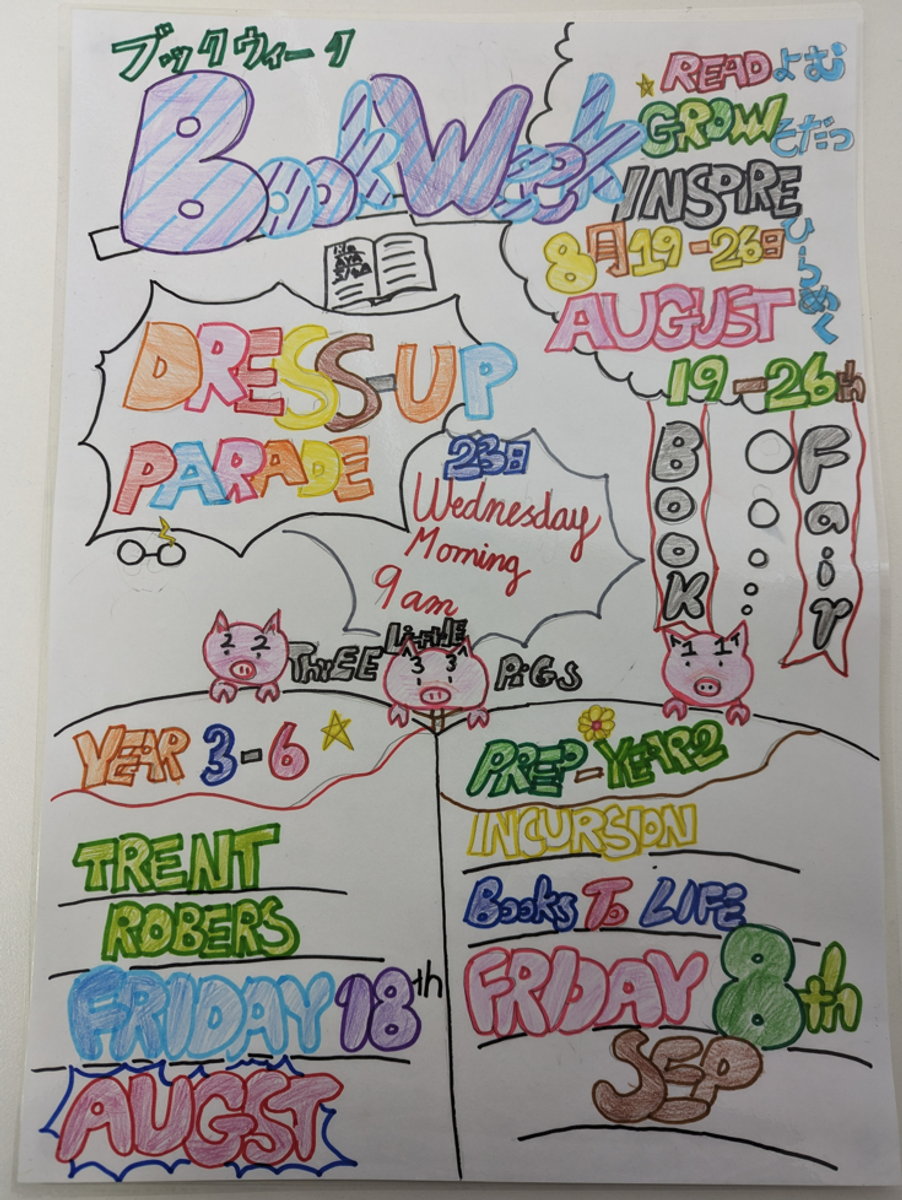 ブックウィーク
Book Week
READ よむ
GROW そだつ
INSPIRE ひらめく
8月19-26日
AUGUST
19-26th
BOOK Fair
DRESS-UP
PARADE
23日
Wednesday
Morning
9am
THrEE LittlE PiGS
2 2
3 3
1 1
YEAR 3-6
TRENT
ROBERS
FRIDAY 18th
AUGST
PREP-YEAR2
INCURSION
Books To LIFE
FRIDAY 8th
SEP